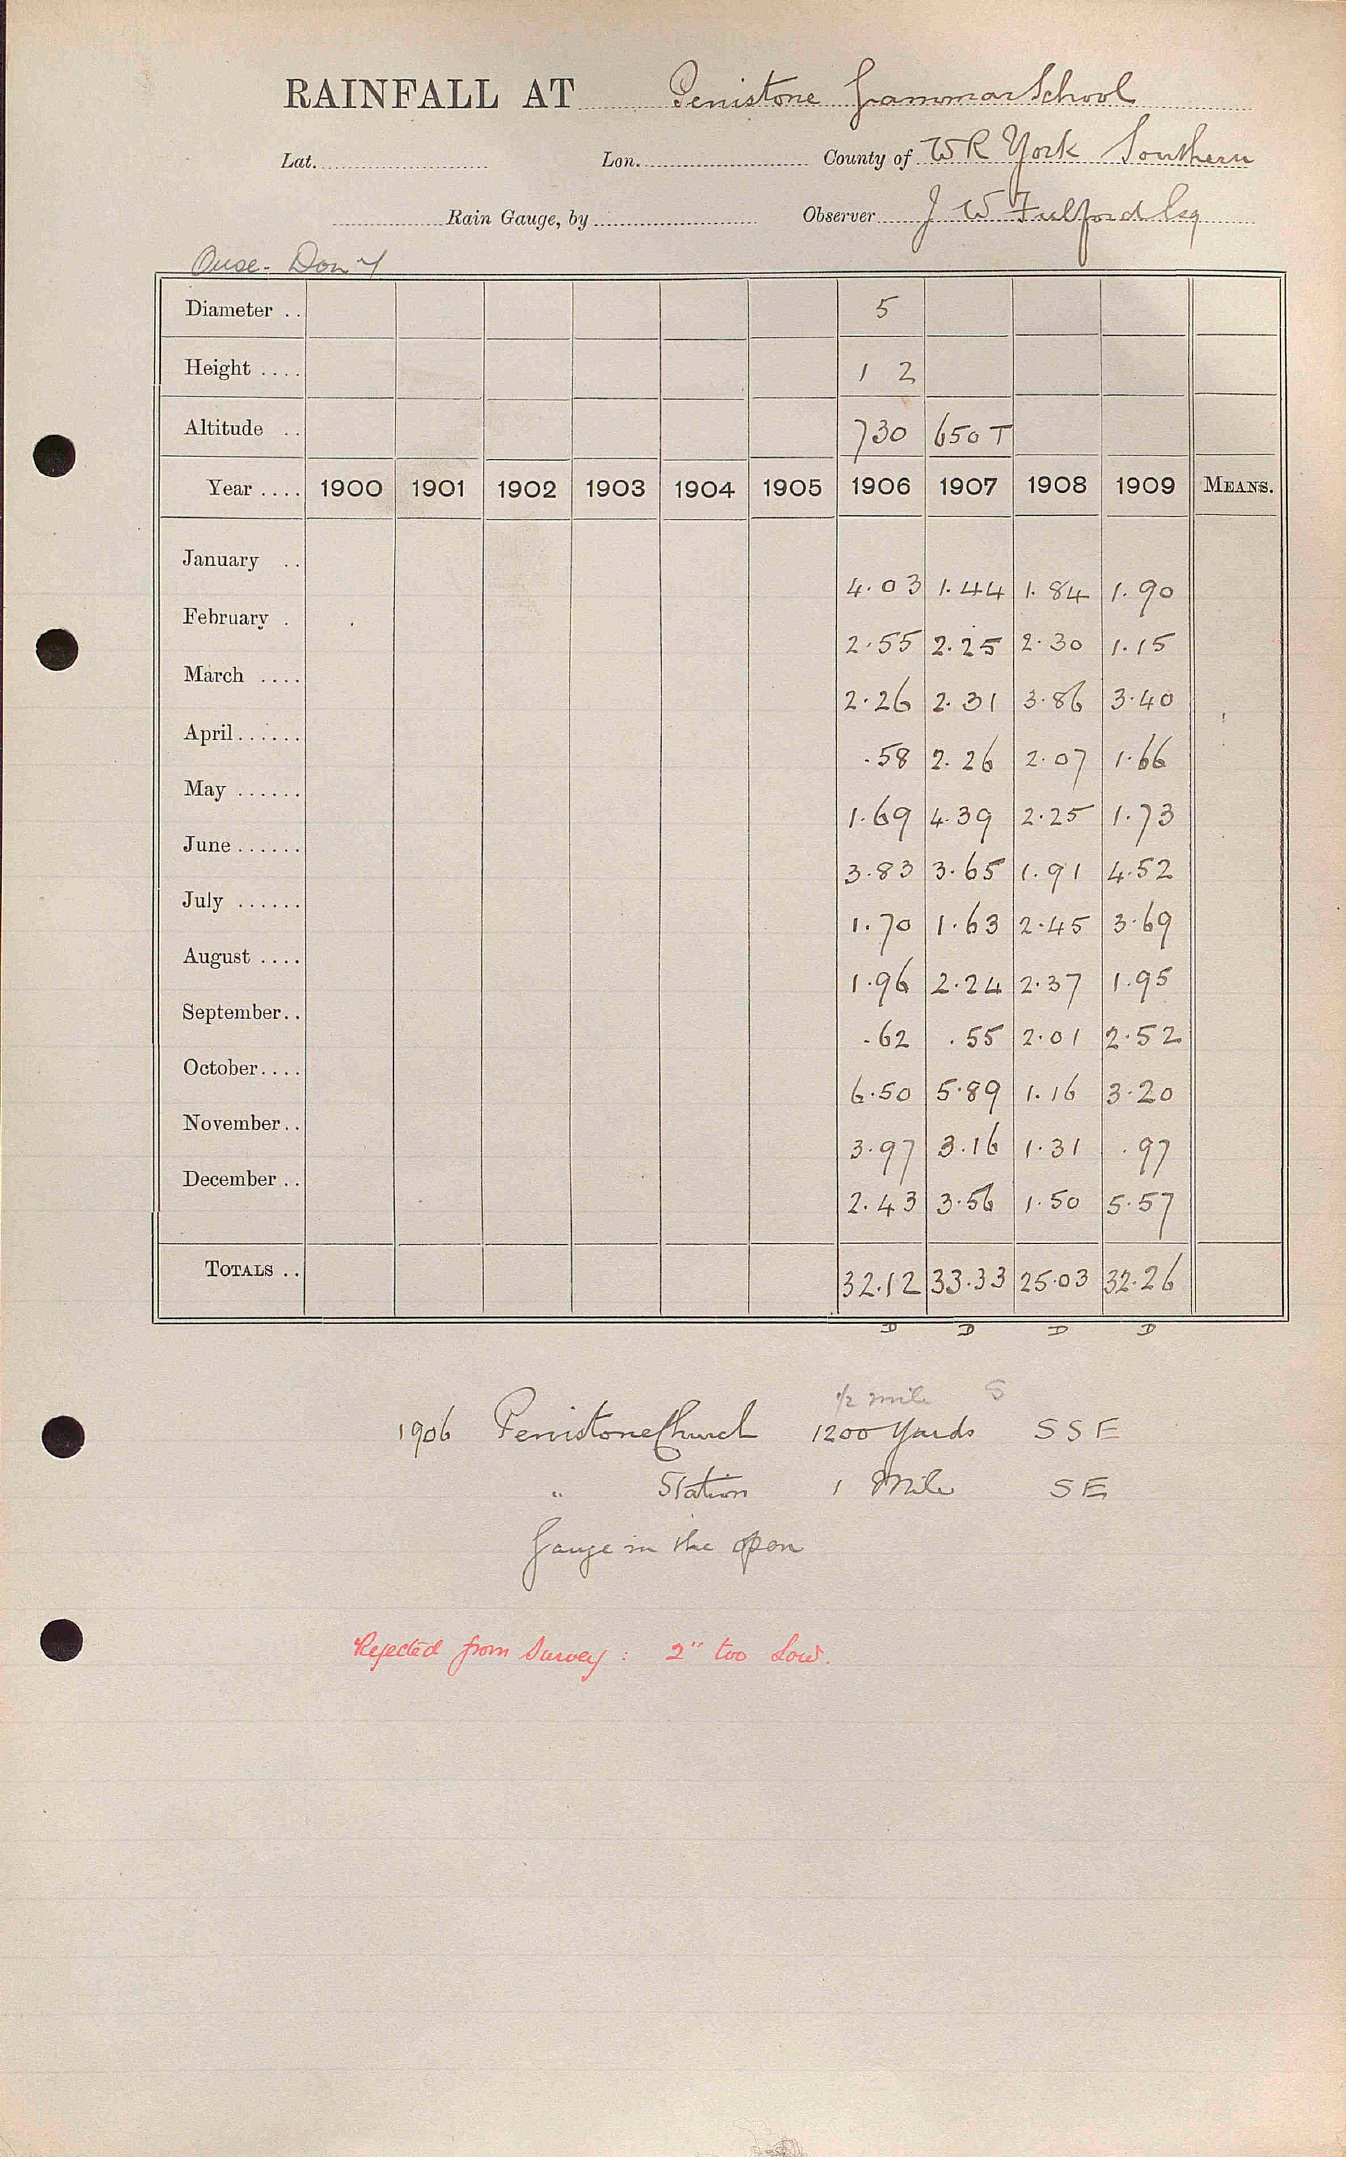 RAINFALL AT Penistone Grammar School
Lat. Lon. County of WR York Southern
Rain Gauge, by Observer J W Fulford Esq
Ouse - Don
Diameter .. 5
Height .... 1 2
Altitude .. 730 650 T
Year .... 1900 1901 1902 1903 1904 1905 1906 1907 1908 1909 MEANS.
January .. 4.03 1.44 1.84 1.90
February . 2.55 2.25 2.30 1.15
March .... 2.26 2.31 3.86 3.40
April ...... .58 2.26 2.07 1.66
May ...... 1.69 4.39 2.25 1.73
June ...... 3.83 3.65 1.91 4.52
July ...... 1.70 1.63 2.45 3.69
August .... 1.96 2.24 2.37 1.95
September.. .62 .55 2.01 2.52
October.... 6.50 5.89 1.16 3.20
November.. 3.97 3.16 1.31 .97
December .. 2.43 3.56 1.50 5.57
TOTALS .. 32.12 33.33 25.03 32.26
D D D D
1/2 mile S
1906 Penistone Church 1200 Yards SSE
" Station 1 Mile SE
Gauge in the open
Rejected from Survey : 2" too Low.